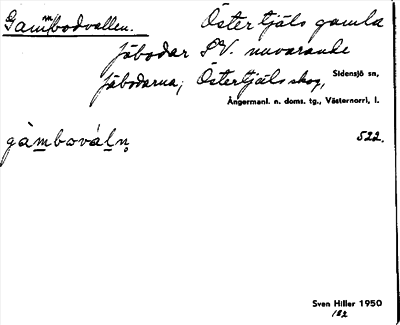 Gammbodvallen. Östertjäls gamla
fäbodar S.V. nuvarande
fäbodarna; Östertjäls skog, Sidensjö sn,
Ångermanl. n. doms. tg., Västernorrl, l.
gàmbovál̥n̥ 522.
Sven Hiller 1950
182